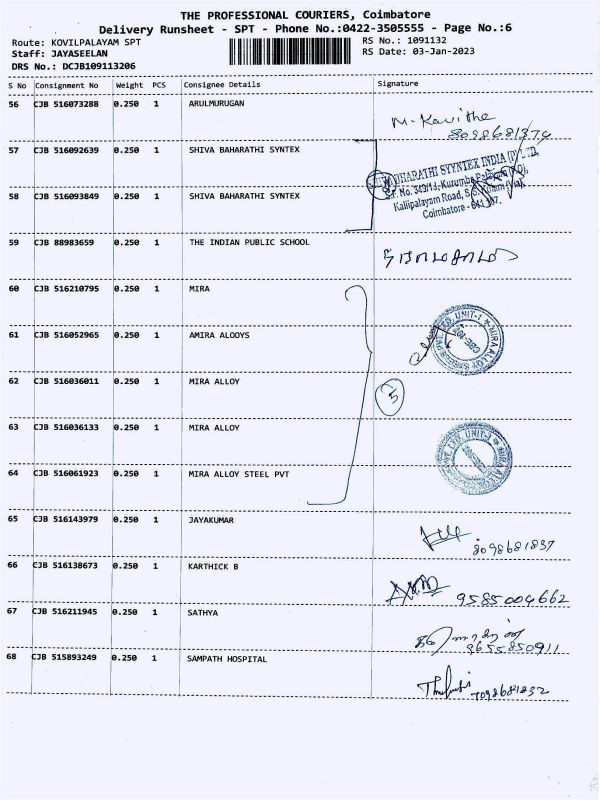 THE PROFESSIONAL COURIERS, Coimbatore
Delivery Runsheet - SPT - Phone No.:0422-3505555 - Page No.:6
Route: KOVILPALAYAM SPT RS No.: 1091132
Staff: JAYASEELAN RS Date: 03-Jan-2023
DRS No.: DCJB109113206
S No Consignment No Weight PCS Consignee Details Signature
56 CJB 516073288 0.250 1 ARULMURUGAN
M. Kavitha
8098681374
57 CJB 516092639 0.250 1 SHIVA BAHARATHI SYNTEX
BHARATHI SYYNTEX INDIA (P) LTD,
S.F. No. 349/1J, Kurumba
58 CJB 516093849 0.250 1 SHIVA BAHARATHI SYNTEX
Kallipalayam Road,
Coimbatore - 641
59 CJB 88983659 0.250 1 THE INDIAN PUBLIC SCHOOL
60 CJB 516210795 0.250 1 MIRA
61 CJB 516052965 0.250 1 AMIRA ALOOYS
UNIT-1 ★ MIRA ALLOY STEELS PVT. LTD
62 CJB 516036011 0.250 1 MIRA ALLOY
5
63 CJB 516036133 0.250 1 MIRA ALLOY
UNIT-1 ★ MIRA ALLOY
64 CJB 516061923 0.250 1 MIRA ALLOY STEEL PVT
65 CJB 516143979 0.250 1 JAYAKUMAR
8098681837
66 CJB 516138673 0.250 1 KARTHICK B
9585004662
67 CJB 516211945 0.250 1 SATHYA
9655850911
68 CJB 515893249 0.250 1 SAMPATH HOSPITAL
7098681832